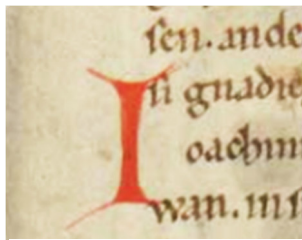 ſen. an de
In gnadie
oachim
wan. in